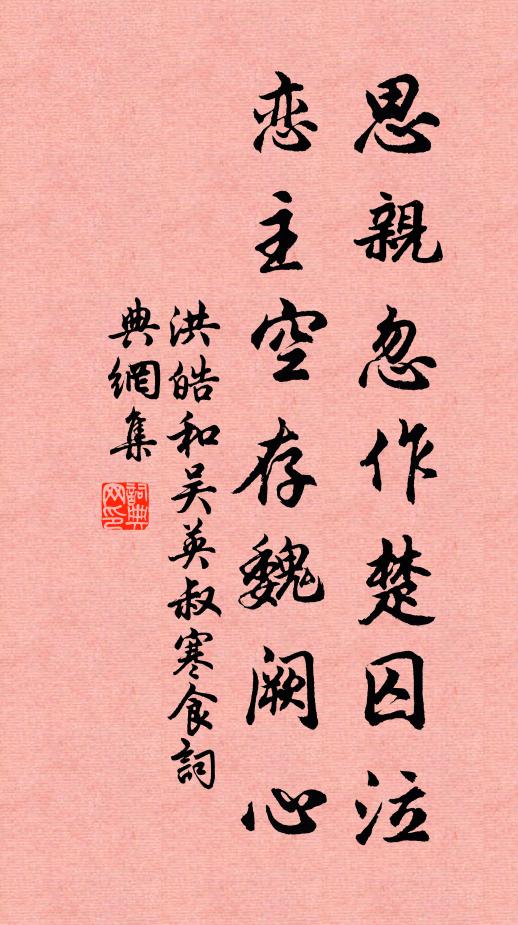 思親忽作楚囚泣
恋主空存魏阙心
洪皓和吴英叔寒食詞
典網集
詞典网印